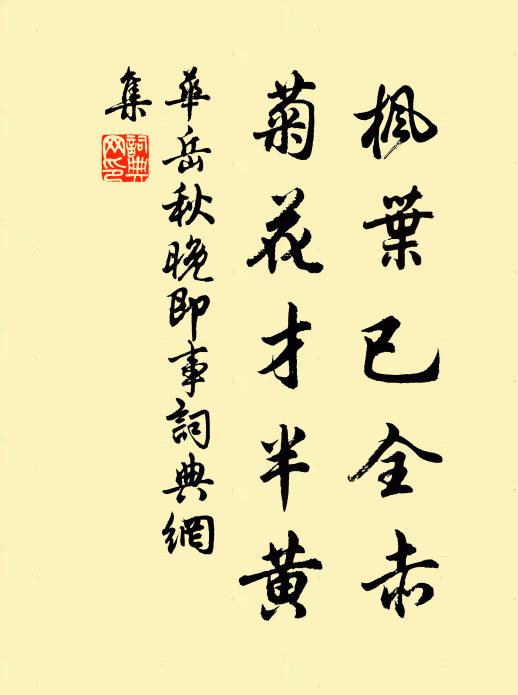 楓葉已全赤
菊花才半黃
華岳秋晚即事詞典網
集
詞典
网印